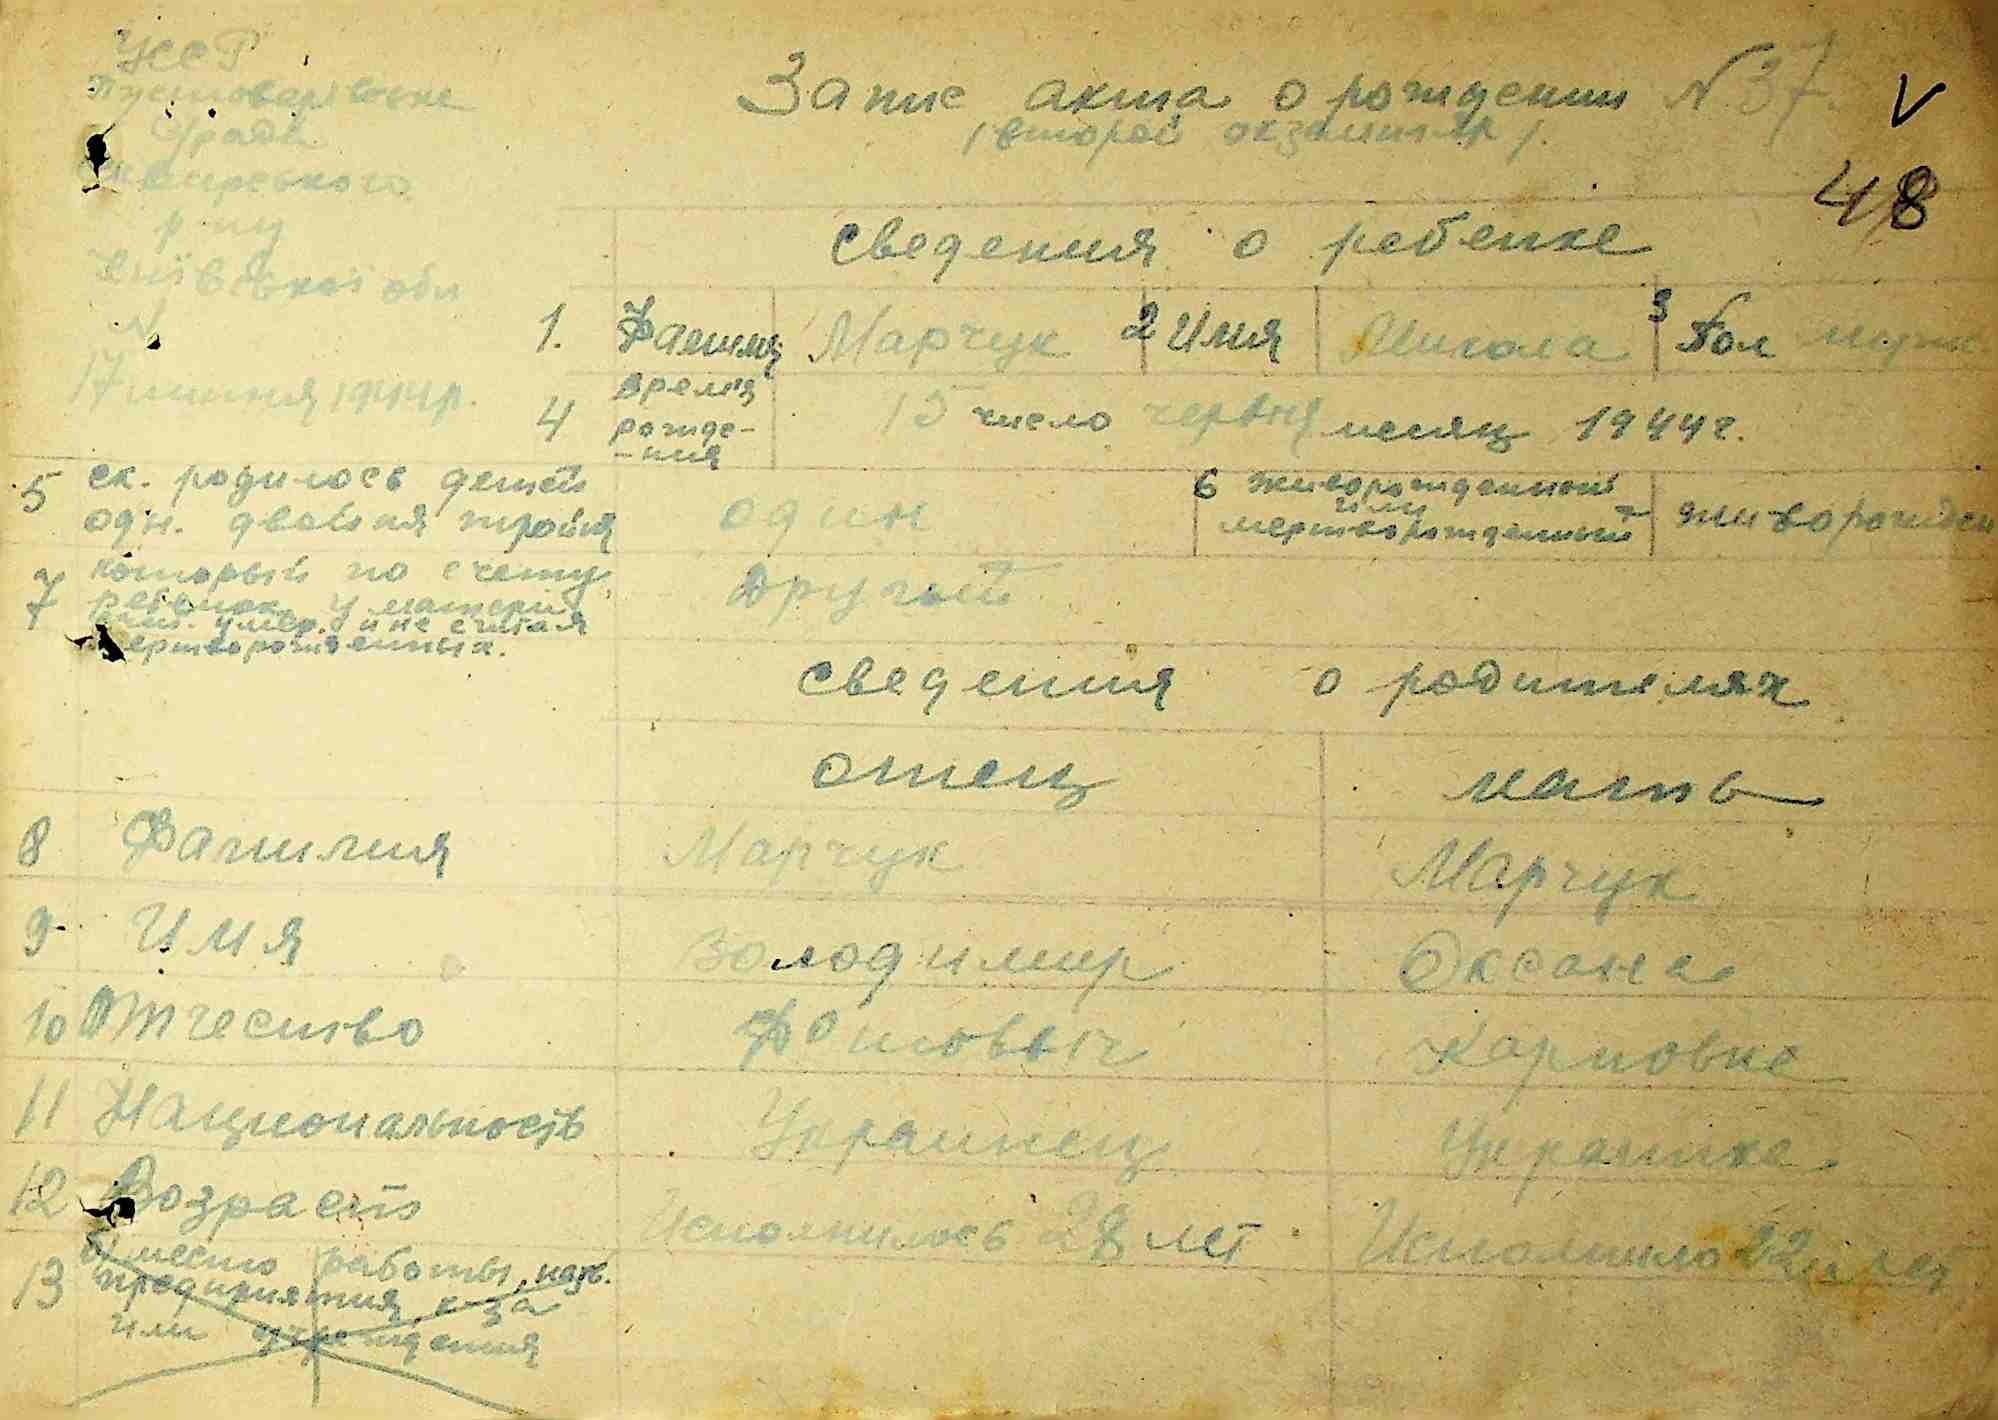 УССР
Пустоварівське
С/рада
Сквирського
р-ну
Київської обл
N
17 июня 1944 р.
Запис акта о рождении N 37.
/второй экземпляр/.
V
48
сведения о ребенке
1. Фамилия Марчук 2 Имя Микола 3 Пол муж
4 время рожде-
-ния 15 число червня месяц 1944 г.
5 ск. родилось детей
одн. двойня тройня один 6 живорожденный
или
мертворожденный живорожден
7 который по счету
ребенок у матери
умер. и не считая
мертворожденных. Другий
сведения о родителях
отец мать
8 Фамилия Марчук Марчук
9 Имя Володимир Оксана
10 Отчество Фотовыч Карповна
11 Национальность Украинец Украинка
12 Возраст Исполнилось 28 лет Исполнило 22 лет
13 место работы, назв.
предприятия, к-за
или учреждения